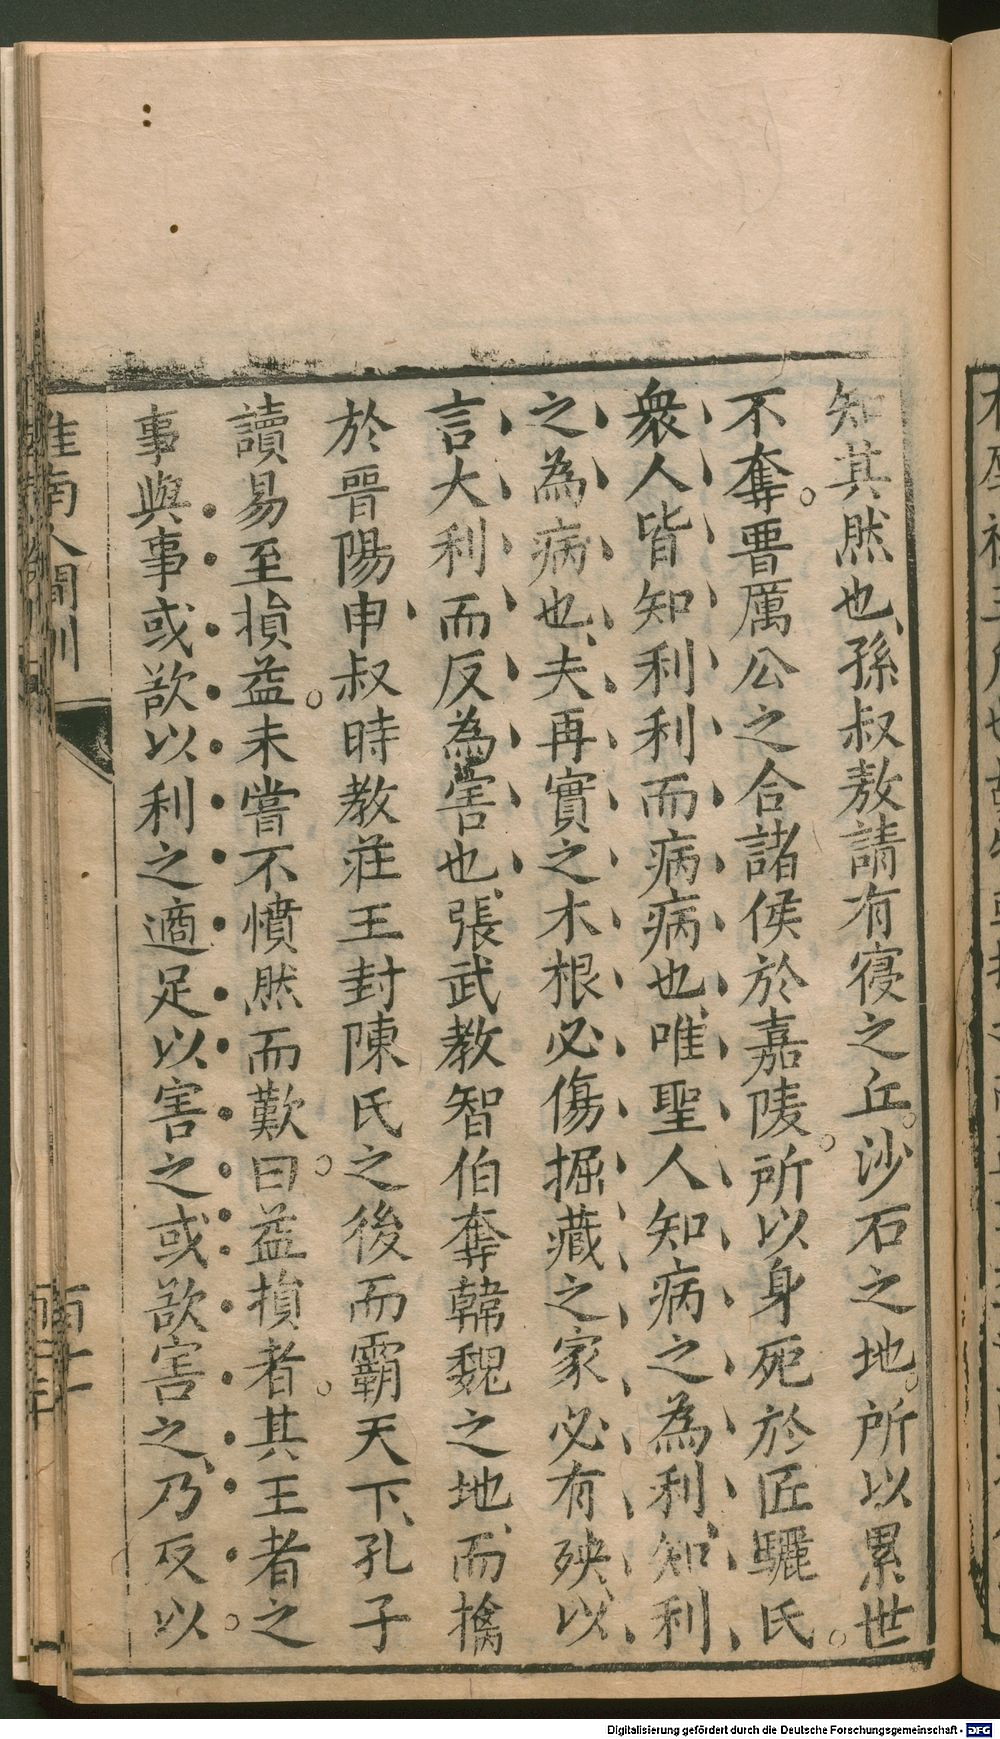 知其然也孫叔敖請有寑之丘沙石之地所以累世
不奪晋厲公之合諸侯於嘉陵所以身死於匠驪氏
衆人皆知利利而病病也唯聖人知病之為利知利
之為病也夫再實之木根必傷掘藏之家必有殃以
言大利而反為害也張武教智伯奪韓魏之地而擒
於晋陽申叔時教莊王封陳氏之後而霸天下孔子
讀易至損益未嘗不憤然而歎曰益損者其王者之
事與事或欲以利之適足以害之或欲害之乃反以
淮南人間訓
Digitalisierung gefördert durch die Deutsche Forschungsgemeinschaft - DFG